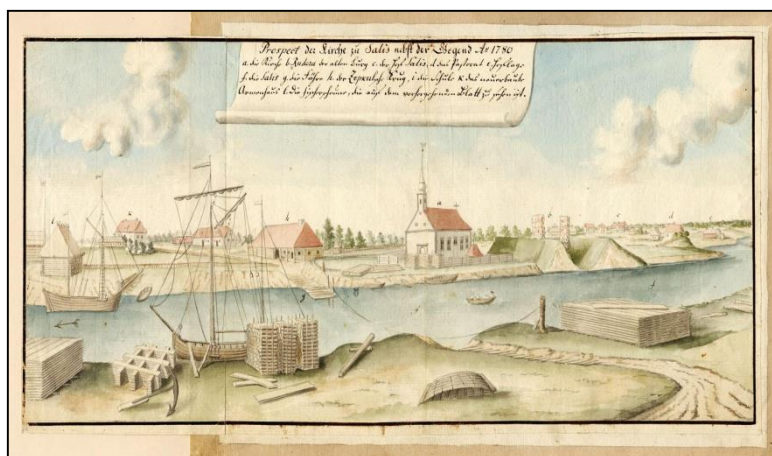 Prospect der Kirche zu Salis nebst der Gegend Aº 1780
a. die Kirche b. Rudera der alten Burg c. der Hof Salis, d. das Pastorat e.
f. die Salis g. die Fähre h. der Krug, i die Schule k. das neuerbaute
Armenhaus l. die die auf dem vorhergehenden Blatt zu sehen ist.